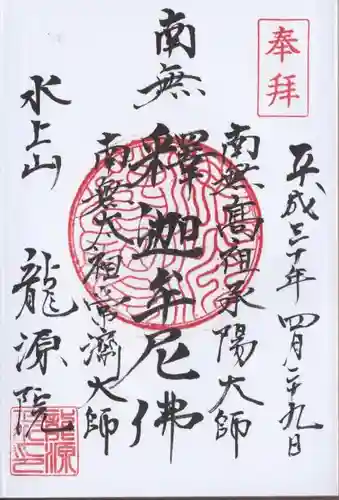 奉拝
平成三十年四月二十九日
南無髙祖承陽大師
南無釋迦牟尼佛
南無太祖常濟大師
水上山
龍源院
龍源院印